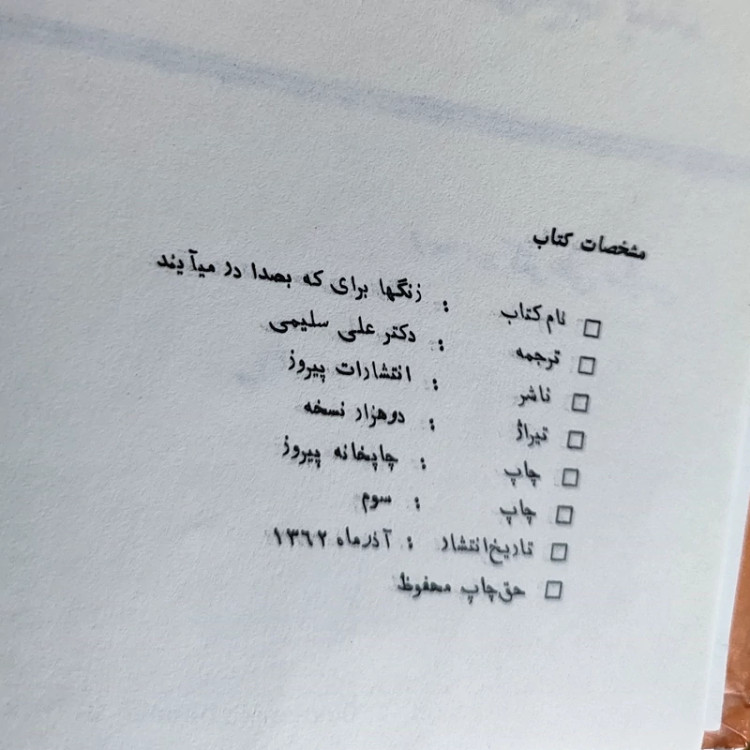 مشخصات کتاب
□ نام کتاب : زنگها برای که بصدا در میآیند
□ ترجمه : دکتر علی سلیمی
□ ناشر : انتشارات پیروز
□ تیراژ : دوهزار نسخه
□ چاپ : چاپخانه پیروز
□ چاپ : سوم
□ تاریخ انتشار : آذرماه ۱۳۶۲
□ حق چاپ محفوظ